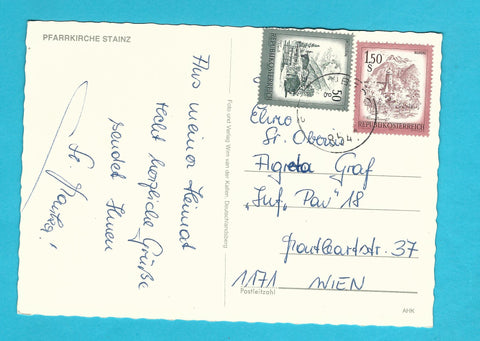 PFARRKIRCHE STAINZ
Aus meiner Heimat
recht herzliche Grüße
sendet Ihnen
Sr.
Foto und Verlag Wim van der Kallen, Deutschlandsberg
REPUBLIK ÖSTERREICH
50
1.50
S
REPUBLIK ÖSTERREICH
Sr. Oberin
Agreda Graf
"Inf. Pav" 18
37
1171 WIEN
Postleitzahl
AHK